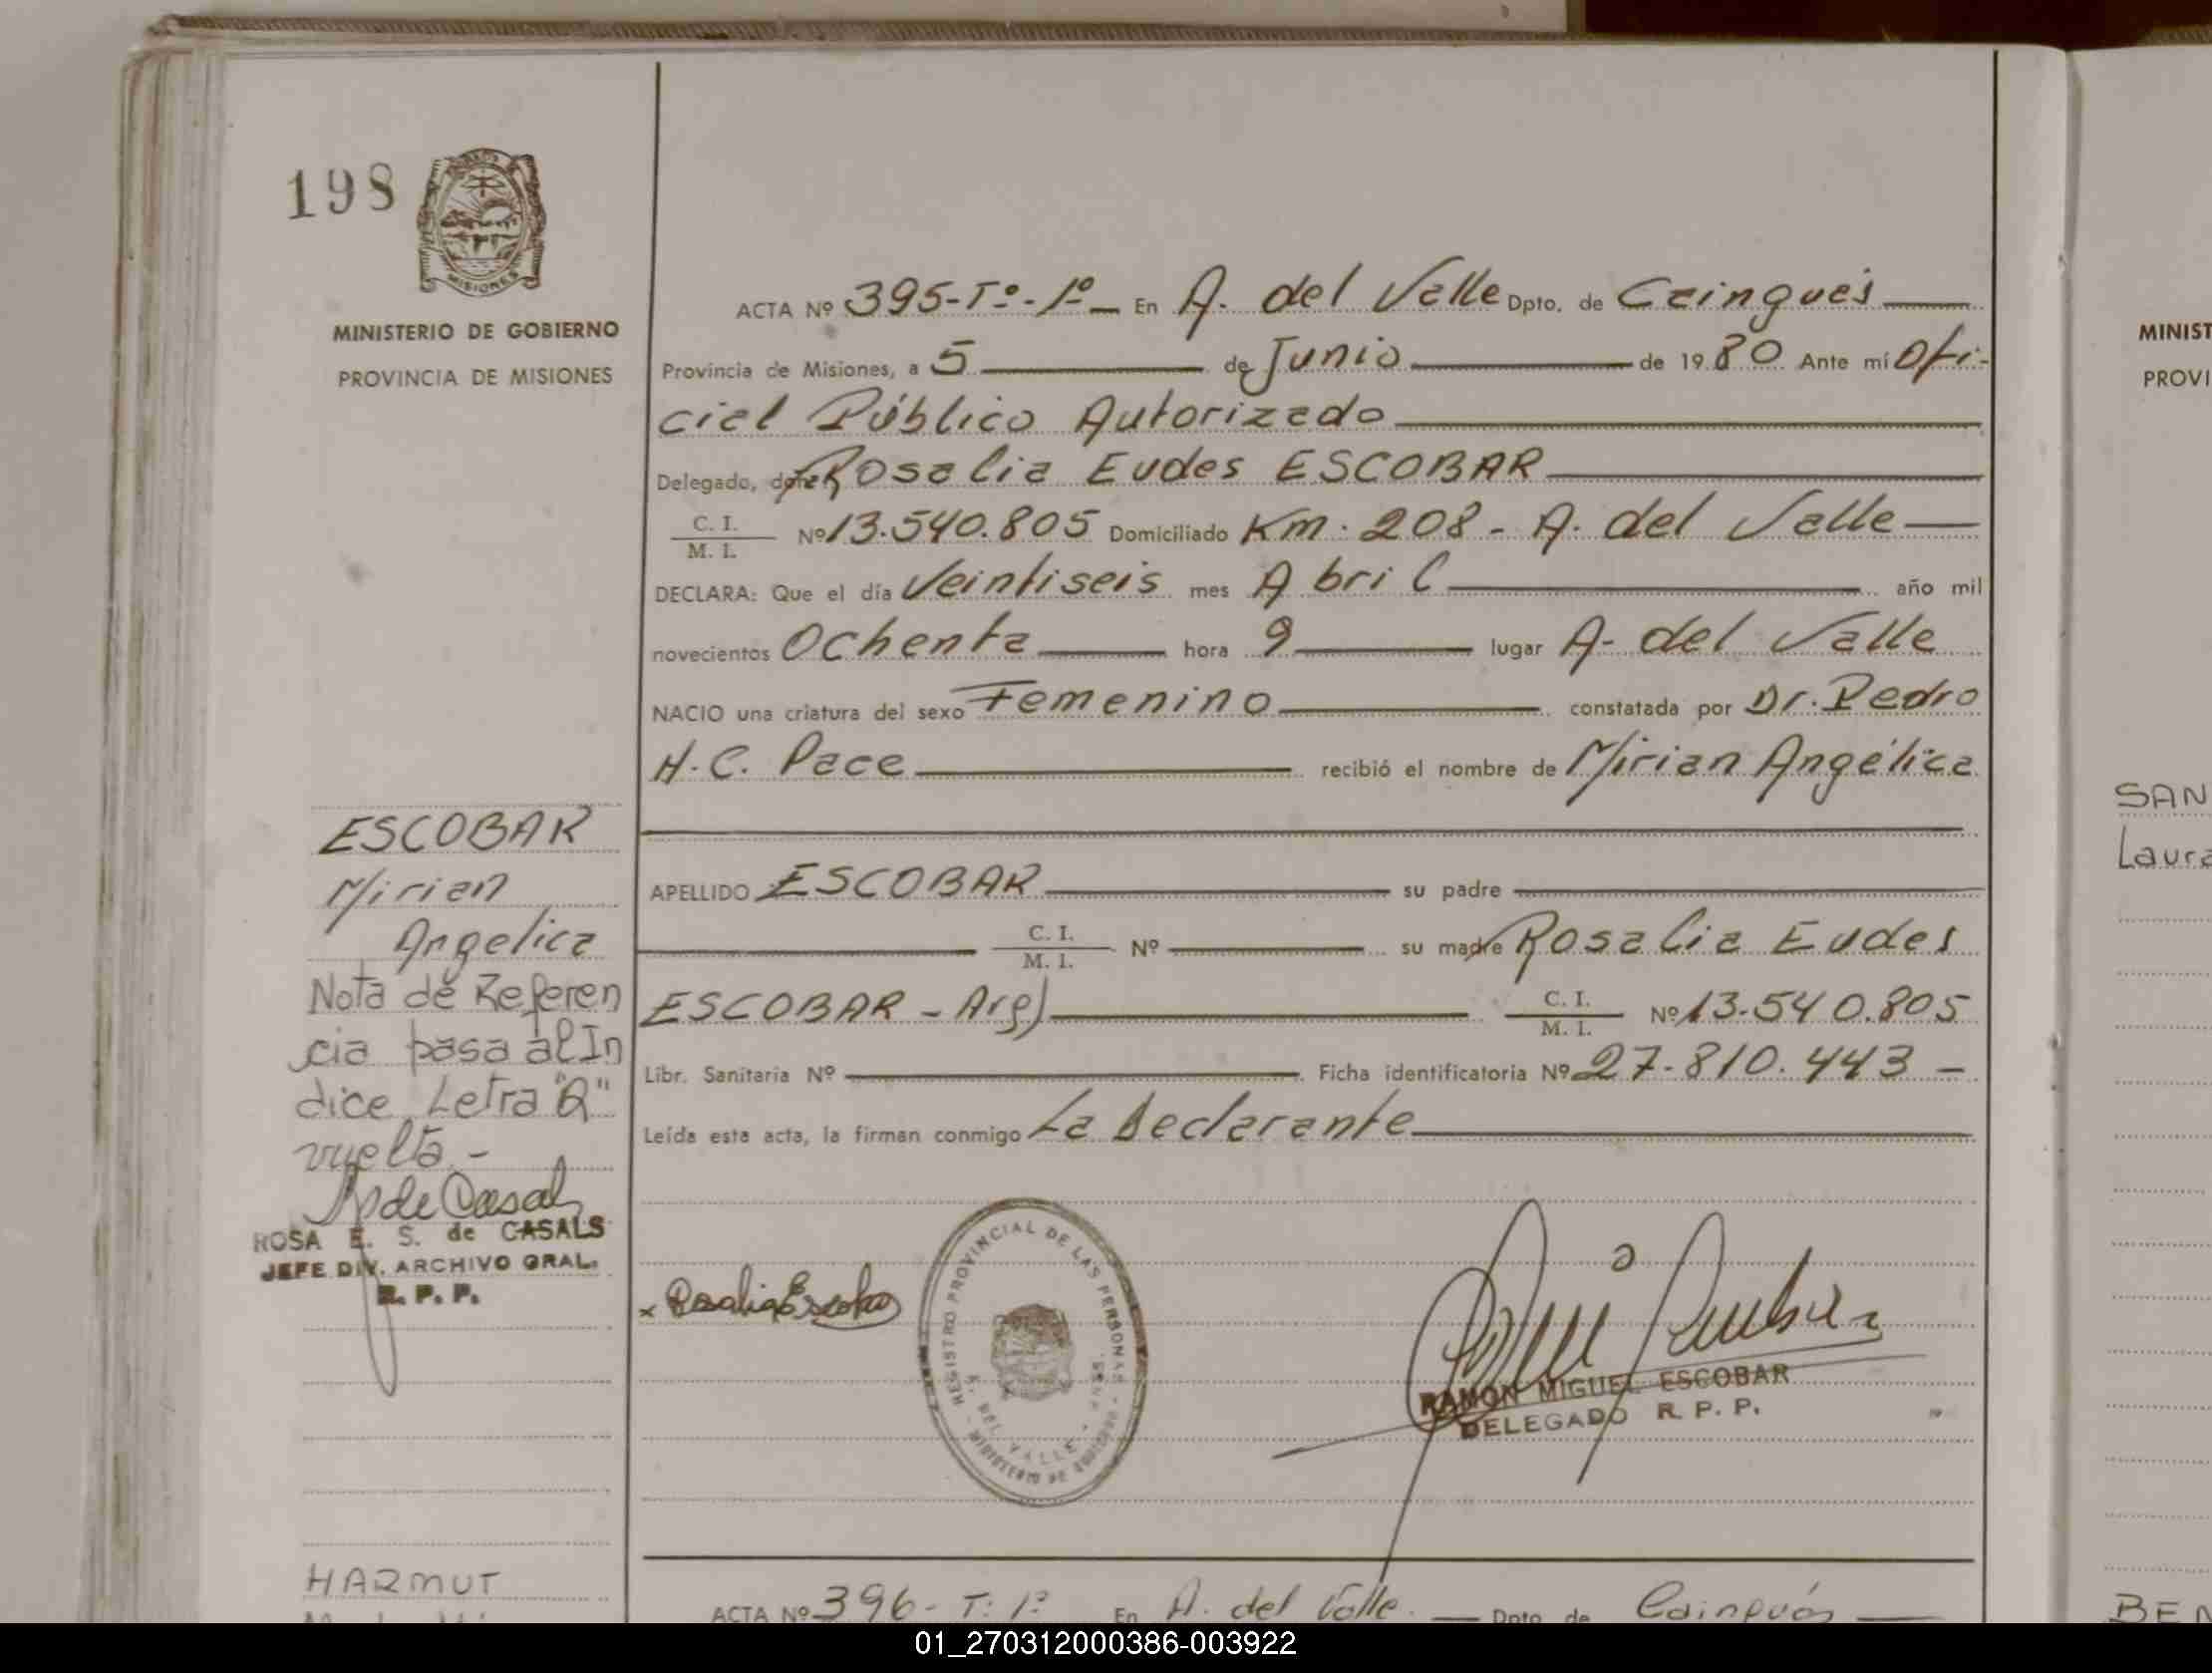 198
MISIONES
MINISTERIO DE GOBIERNO
PROVINCIA DE MISIONES
ACTA Nº 395-Tº-1º- En A. del Valle Dpto. de Cainguás
Provincia de Misiones, a 5 de Junio de 1980 Ante mí Ofi-
cial Público Autorizado
Delegado, doña Rosalia Eudes ESCOBAR
C. I.
M. I. Nº 13.540.805 Domiciliado Km. 208 - A. del Valle
DECLARA: Que el día Veintiseis mes Abril año mil
novecientos Ochenta hora 9 lugar A- del Valle
NACIO una criatura del sexo Femenino constatada por Dr. Pedro
H. C. Pace recibió el nombre de Mirian Angélica
APELLIDO ESCOBAR su padre
C. I.
M. I. Nº su madre Rosalia Eudes
ESCOBAR - Arg) C. I.
M. I. Nº 13.540.805
Libr. Sanitaria Nº Ficha identificatoria Nº 27.810.443 -
Leída esta acta, la firman conmigo La Declarante
ESCOBAR
Mirian
Angelica
Nota de Referen
cia pasa al In
dice Letra "Q"
vuelta -
de Casals
ROSA E. S. de CASALS
JEFE DIV. ARCHIVO GRAL.
R. P. P.
x Rosalia Escobar
REGISTRO PROVINCIAL DE LAS PERSONAS
A. DEL VALLE
MINISTERIO DE GOBIERNO
RAMON MIGUEL ESCOBAR
DELEGADO R. P. P.
HARMUT
ACTA Nº 396- T: 1º En A. del Valle. Dpto de Cainguás
MINIST
PROVI
SAN
Laura
BEN
01_270312000386-003922